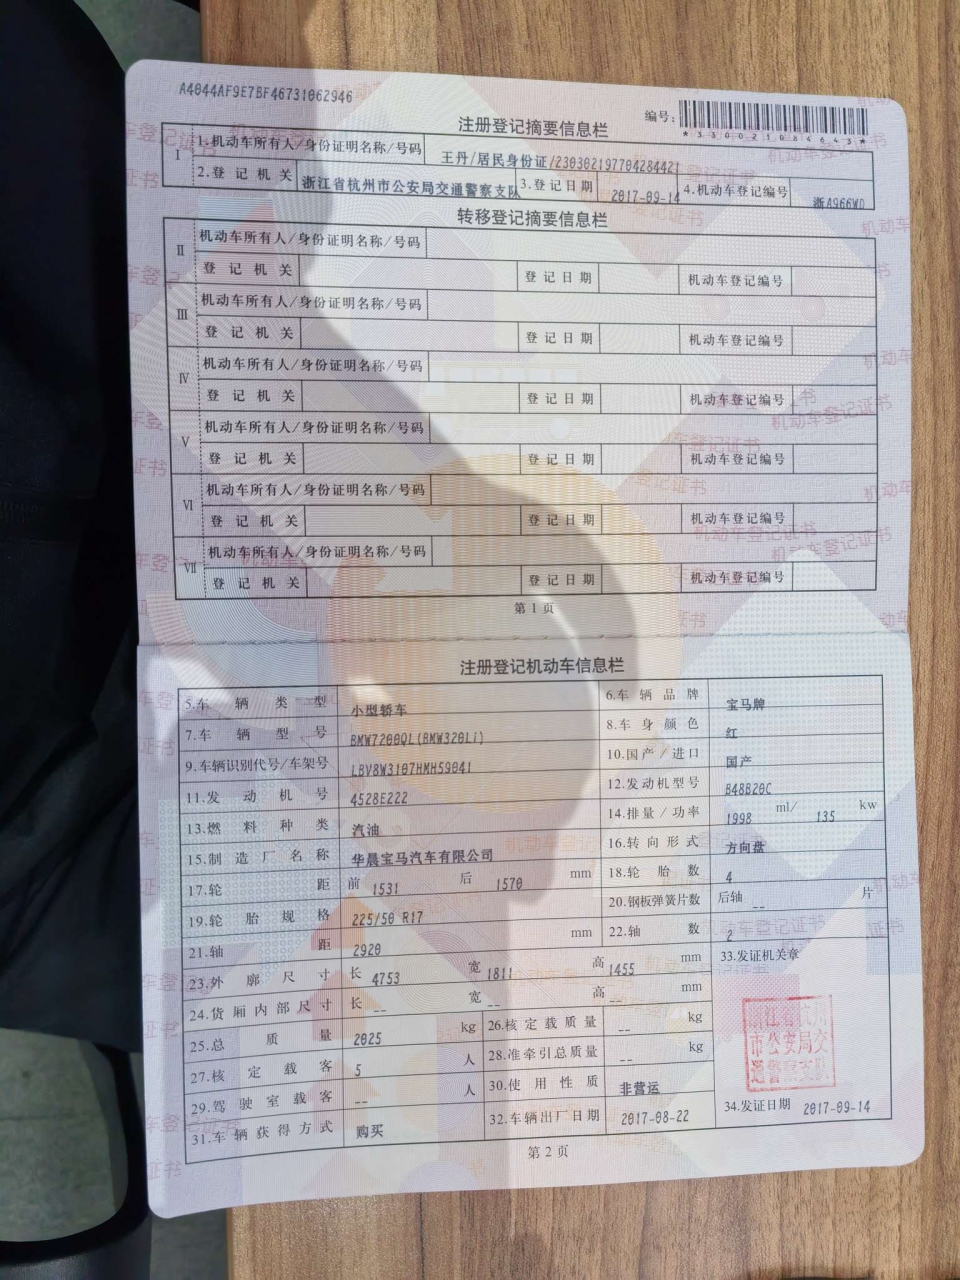 A4044AF9E7BF46731062946
编号:
*330021084643*
注册登记摘要信息栏
I 1.机动车所有人/身份证明名称/号码 王丹/居民身份证/230302197704284421
2.登记机关 浙江省杭州市公安局交通警察支队 3.登记日期 2017-09-14 4.机动车登记编号 浙A966WD
转移登记摘要信息栏
II 机动车所有人/身份证明名称/号码
登记机关 登记日期 机动车登记编号
III 机动车所有人/身份证明名称/号码
登记机关 登记日期 机动车登记编号
IV 机动车所有人/身份证明名称/号码
登记机关 登记日期 机动车登记编号
V 机动车所有人/身份证明名称/号码
登记机关 登记日期 机动车登记编号
VI 机动车所有人/身份证明名称/号码
登记机关 登记日期 机动车登记编号
VII 机动车所有人/身份证明名称/号码
登记机关 登记日期 机动车登记编号
第1页
注册登记机动车信息栏
5.车辆类型 小型轿车 6.车辆品牌 宝马牌
7.车辆型号 BMW7200QL(BMW320Li) 8.车身颜色 红
9.车辆识别代号/车架号 LBV8W3107HMH59041 10.国产/进口 国产
11.发动机号 4528E222 12.发动机型号 B48B20C
13.燃料种类 汽油 14.排量/功率 1998 ml/ 135 kw
15.制造厂名称 华晨宝马汽车有限公司 16.转向形式 方向盘
17.轮距 前 1531 后 1570 mm 18.轮胎数 4
19.轮胎规格 225/50 R17 20.钢板弹簧片数 后轴 -- 片
21.轴距 2920 mm 22.轴数 2
23.外廓尺寸 长 4753 宽 1811 高 1455 mm 33.发证机关章
24.货厢内部尺寸 长 -- 宽 -- 高 -- mm
25.总质量 2025 kg 26.核定载质量 -- kg
27.核定载客 5 人 28.准牵引总质量 -- kg
29.驾驶室载客 -- 人 30.使用性质 非营运
31.车辆获得方式 购买 32.车辆出厂日期 2017-08-22 34.发证日期 2017-09-14
浙江省杭州
市公安局交
通警察支队
第2页